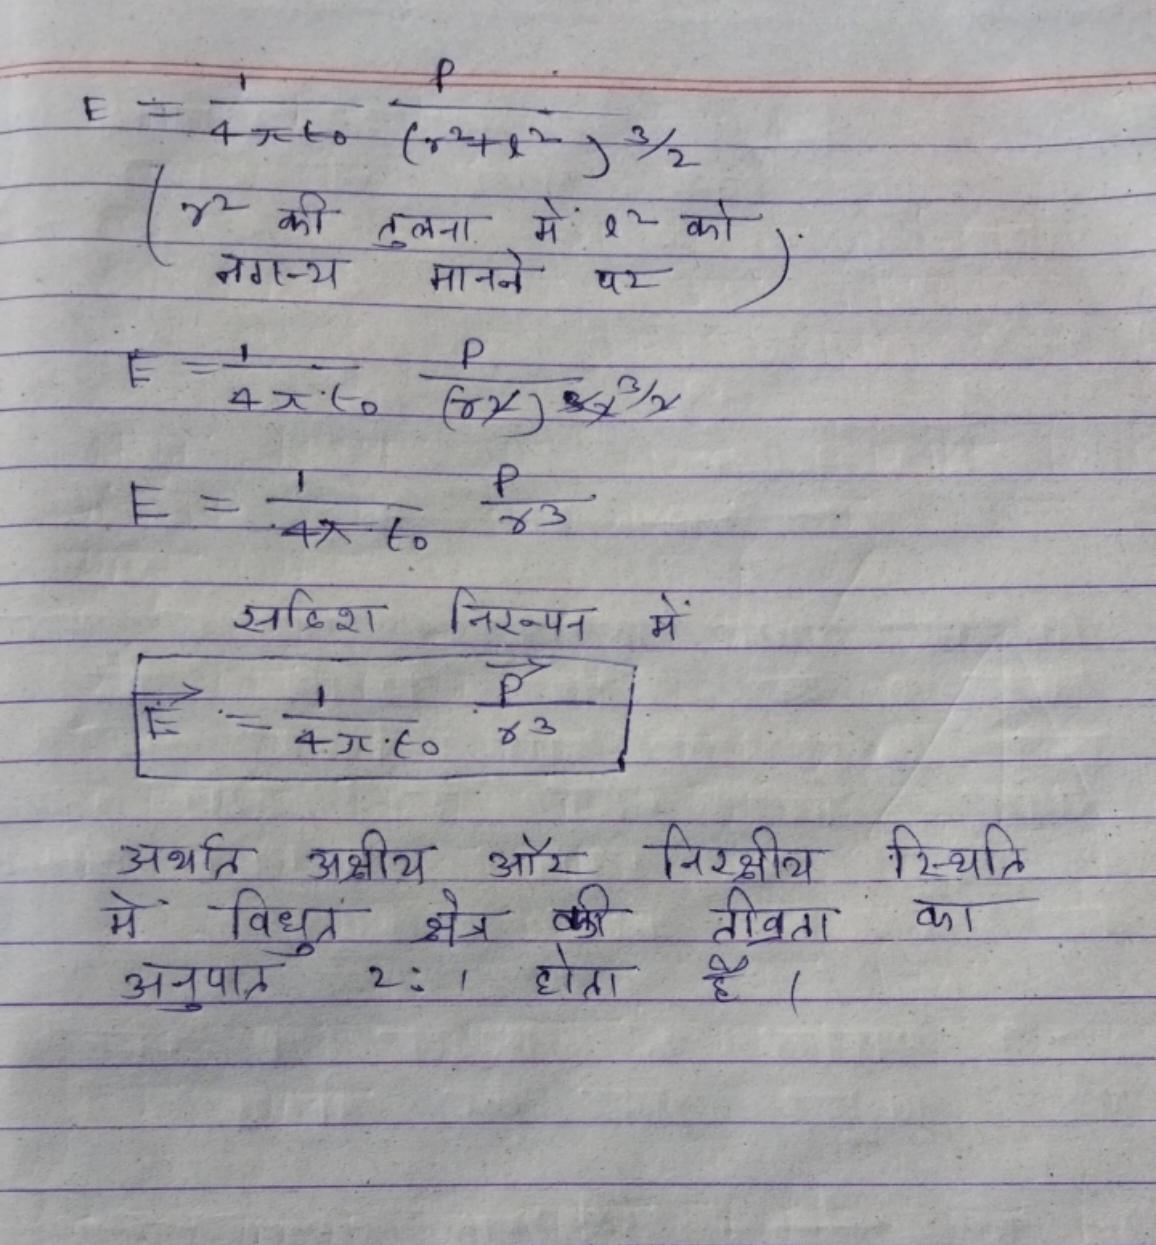 E = 1/4πε₀ P/(r²+l²)^3/2
(r² की तुलना में l² को
नगण्य मानने पर)
E = 1/4π.ε₀ P/(r2)^3/2
E = 1/4π.ε₀ P/r3
सदिश निरूपन में
E⃗ = 1/4.π.ε₀ P⃗/r3
अर्थात अक्षीय और निरक्षीय स्थिति
में विधुत क्षेत्र की तीव्रता का
अनुपात 2:1 होता है।